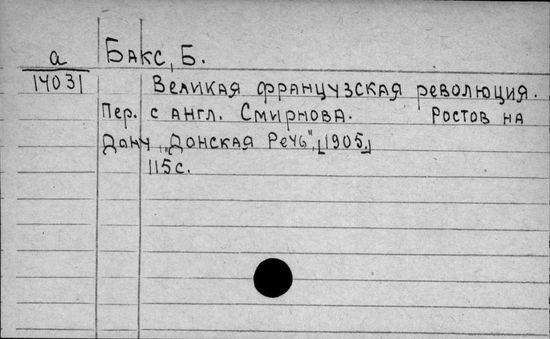 а Бакс, Б.
14031 Великая французская революция.
Пер. с англ. Смирнова. Ростов на
Дону „Донская Речь“, [1905.]
115 с.